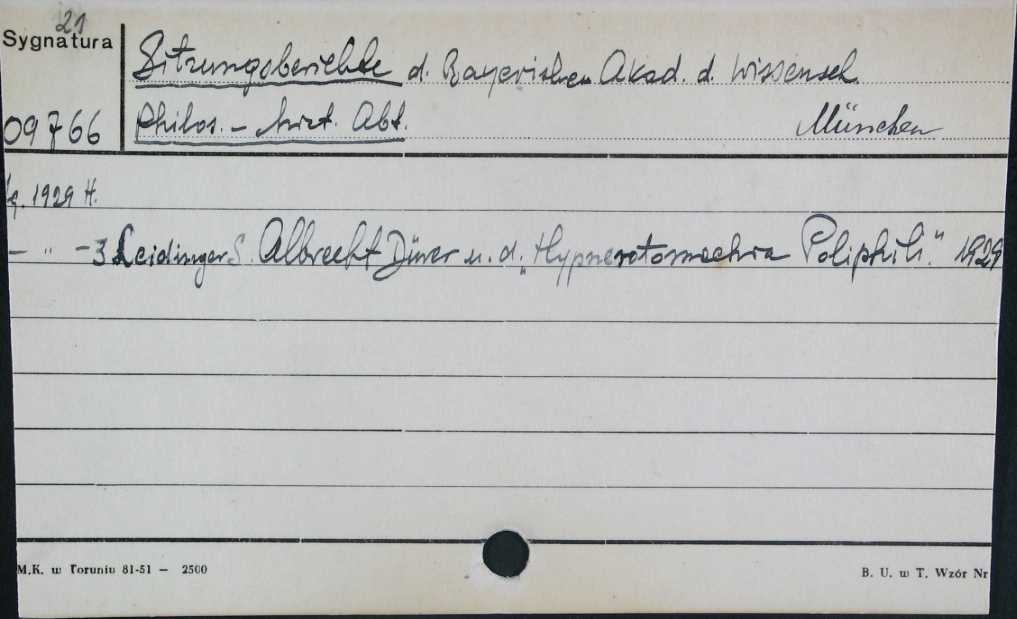 21
Sygnatura
Sitzungsberichte d. Bayerischen Akad. d. Wissensch.
09766
Philos. - hist. Abt. München
Jg. 1929 H.
- " - 3 Leidinger G. Albrecht Dürer u. d. „Hypnerotomachia Poliphili." 1929
M.K. w Toruniu 81-51 — 2500
B. U. w T. Wzór Nr